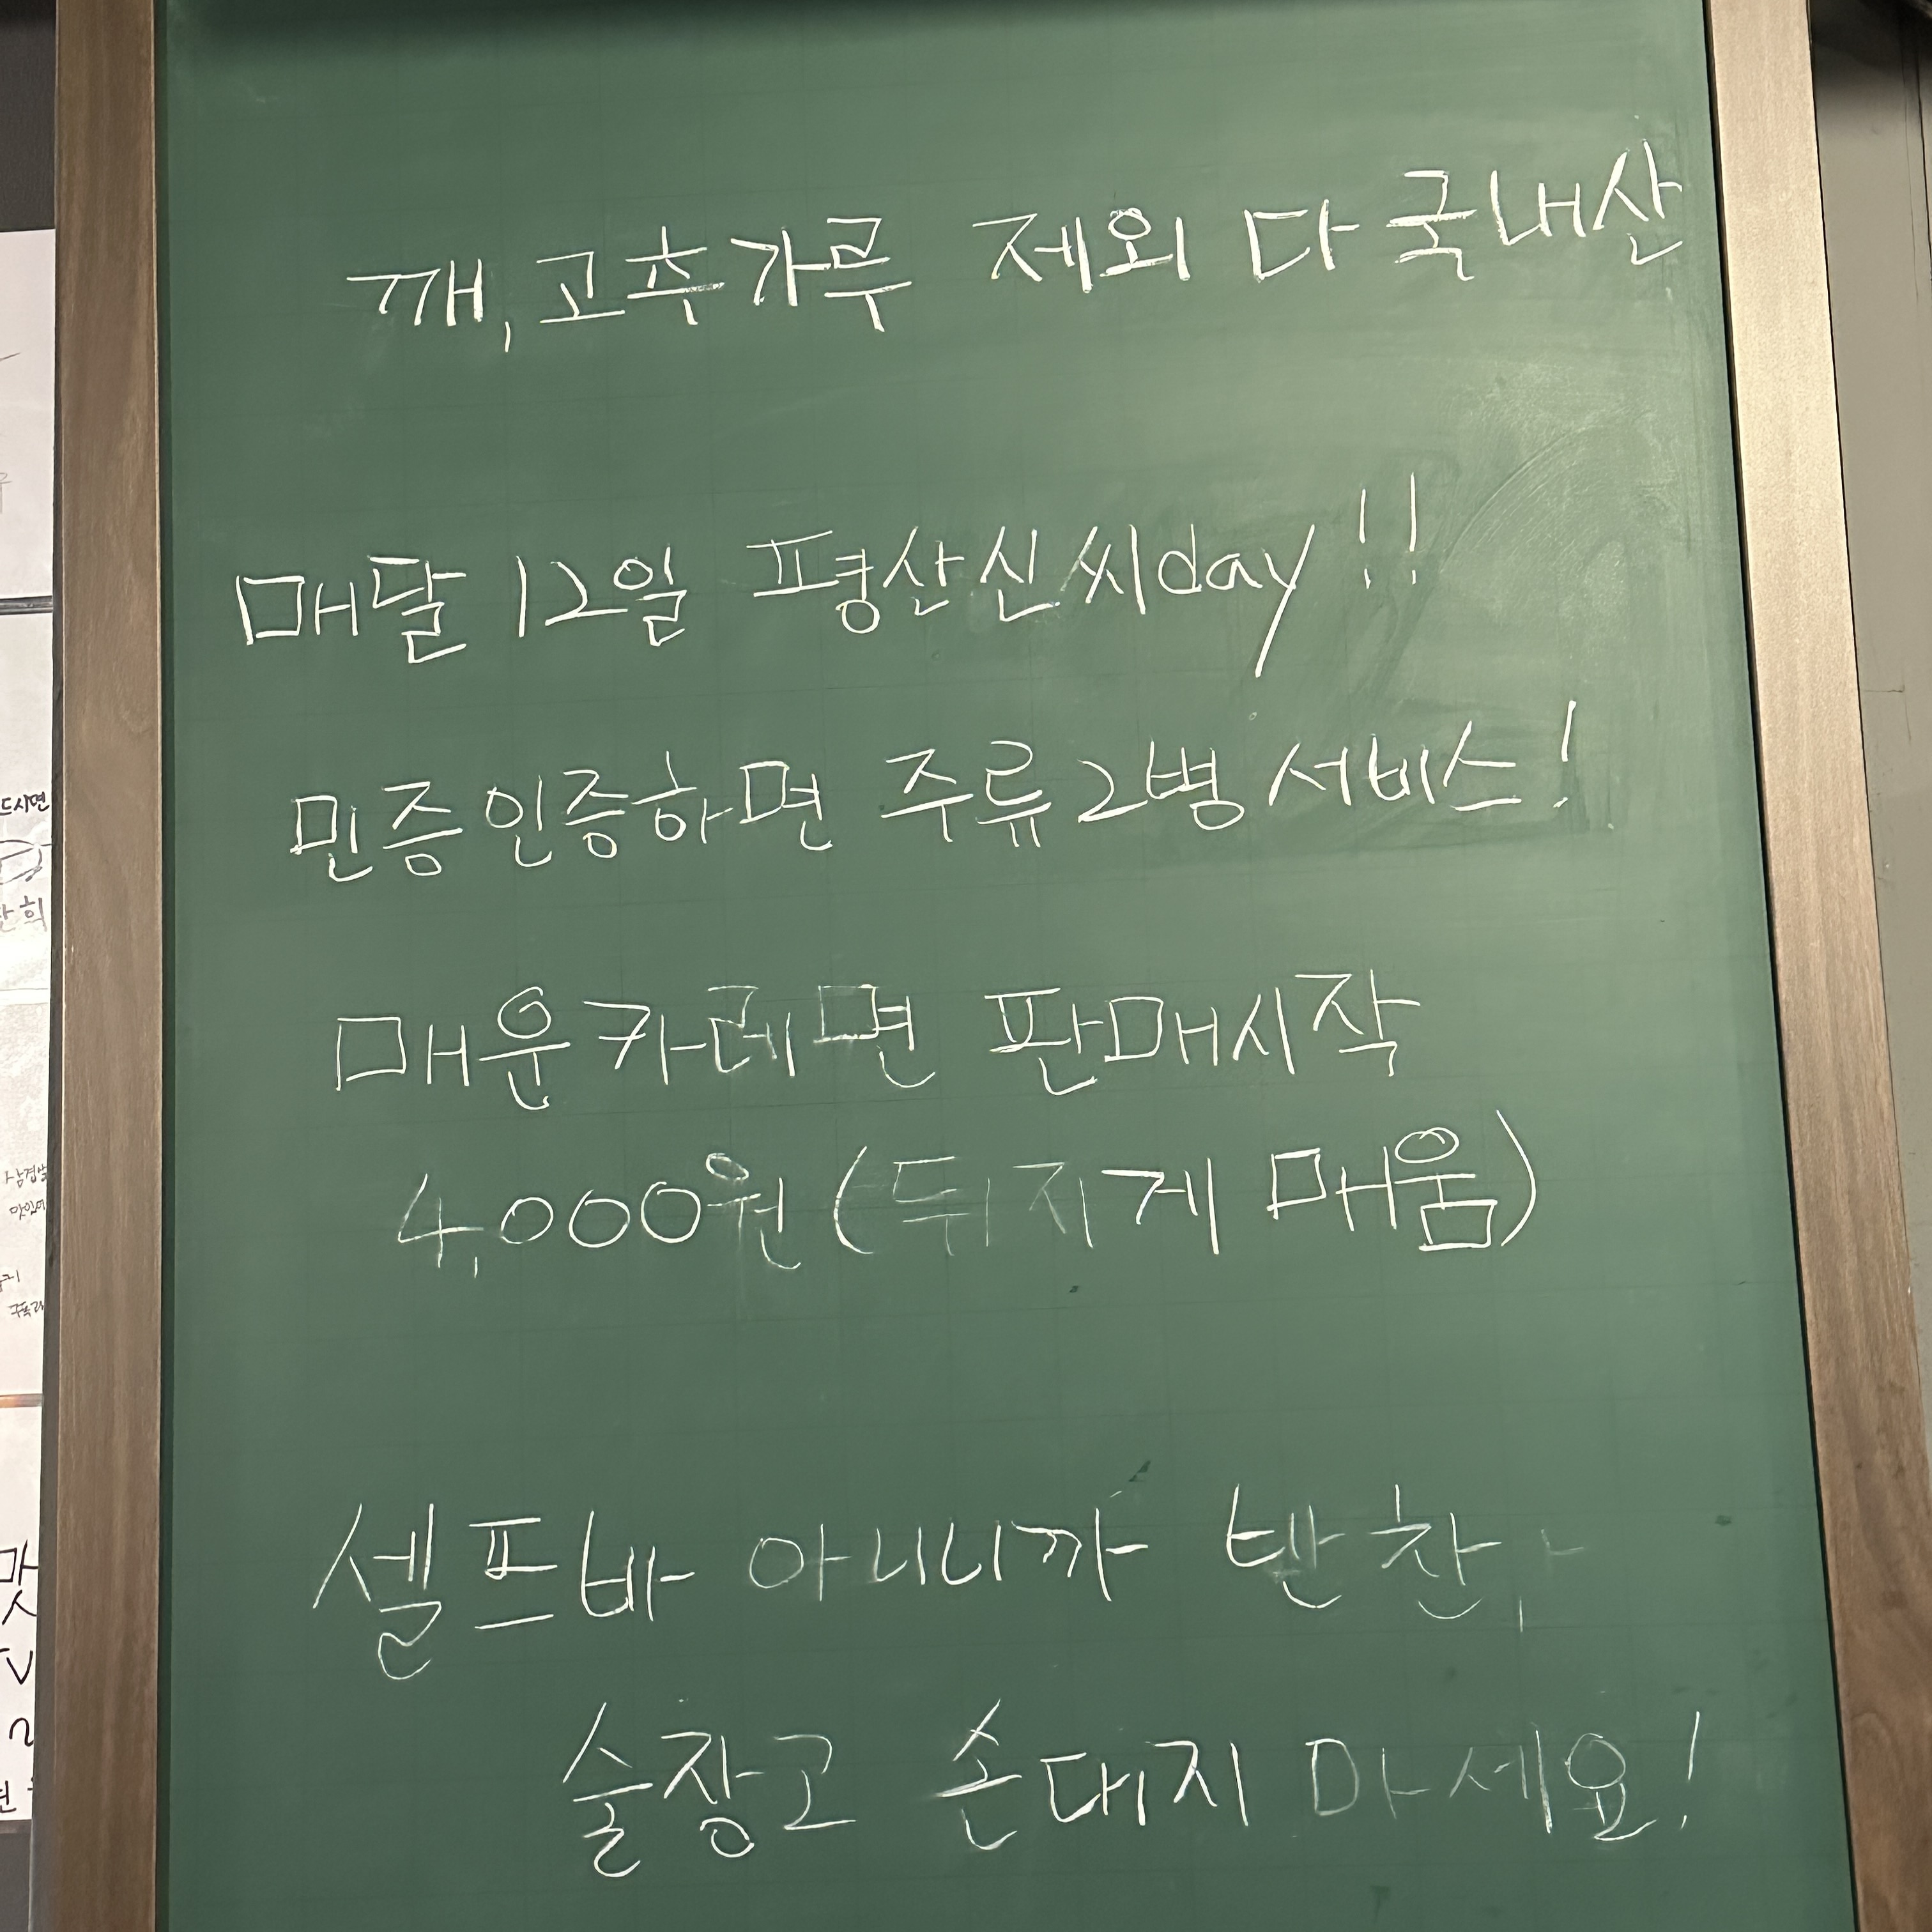 깨, 고추가루 제외 다 국내산
매달 12일 평산신씨day!!
민증인증하면 주류2병 서비스!
매운카레면 판매시작
4,000원 (뒤지게 매움)
셀프바 아니니까 반찬,
술장고 손대지 마세요!
드시면